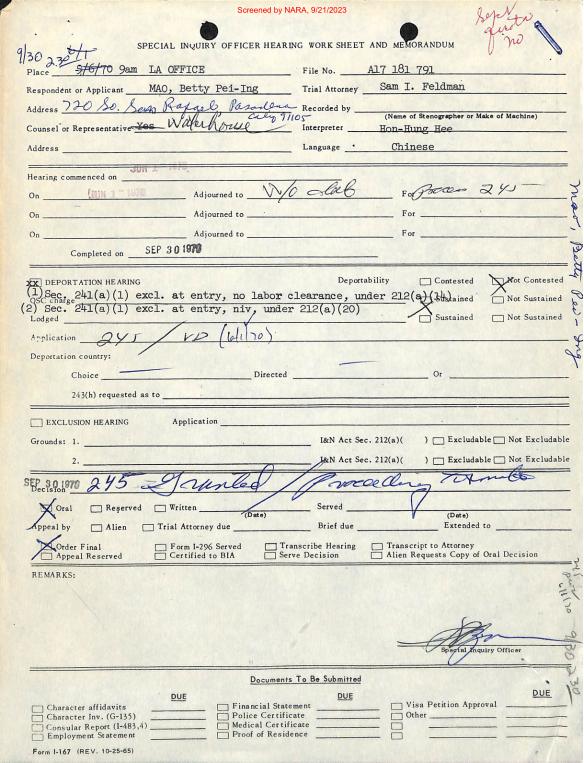 Screened by NARA, 9/21/2023
Sept quota no
9/30 2:30
SPECIAL INQUIRY OFFICER HEARING WORK SHEET AND MEMORANDUM
Place 5/6/70 9am LA OFFICE File No. A17 181 791
Respondent or Applicant MAO, Betty Pei-Ing Trial Attorney Sam I. Feldman
Address 720 So. San Rafael Pasadena Calif 91105 Recorded by
(Name of Stenographer or Make of Machine)
Counsel or Representative Yes Waterhouse Interpreter Hon-Hung Hee
Address Language Chinese
Hearing commenced on JUN 1 - 1970
On JUN 1 - 1970 Adjourned to W/o date For Process 245
On Adjourned to For
On Adjourned to For
Completed on SEP 30 1970
xx DEPORTATION HEARING Deportability Contested Not Contested
(1) Sec. 241(a)(1) excl. at entry, no labor clearance, under 212(a)(14)
OSC charge Sustained Not Sustained
(2) Sec. 241(a)(1) excl. at entry, niv, under 212(a)(20)
Lodged Sustained Not Sustained
Application 245 / VD (6/1/70)
Deportation country:
Choice Directed Or
243(h) requested as to
EXCLUSION HEARING Application
Grounds: 1. I&N Act Sec. 212(a)( ) Excludable Not Excludable
2. I&N Act Sec. 212(a)( ) Excludable Not Excludable
SEP 30 1970
Decision 245 Granted / Proceeding
Oral Reserved Written (Date) Served (Date)
Appeal by Alien Trial Attorney due Brief due Extended to
Order Final Form I-296 Served Transcribe Hearing Transcript to Attorney
Appeal Reserved Certified to BIA Serve Decision Alien Requests Copy of Oral Decision
REMARKS:
Special Inquiry Officer
Documents To Be Submitted
DUE DUE DUE
Character affidavits Financial Statement Visa Petition Approval
Character Inv. (G-135) Police Certificate Other
Consular Report (I-483,4) Medical Certificate
Employment Statement Proof of Residence
Form I-167 (REV. 10-25-65)
Mao, Betty Pei-Ing
9/30 2:30